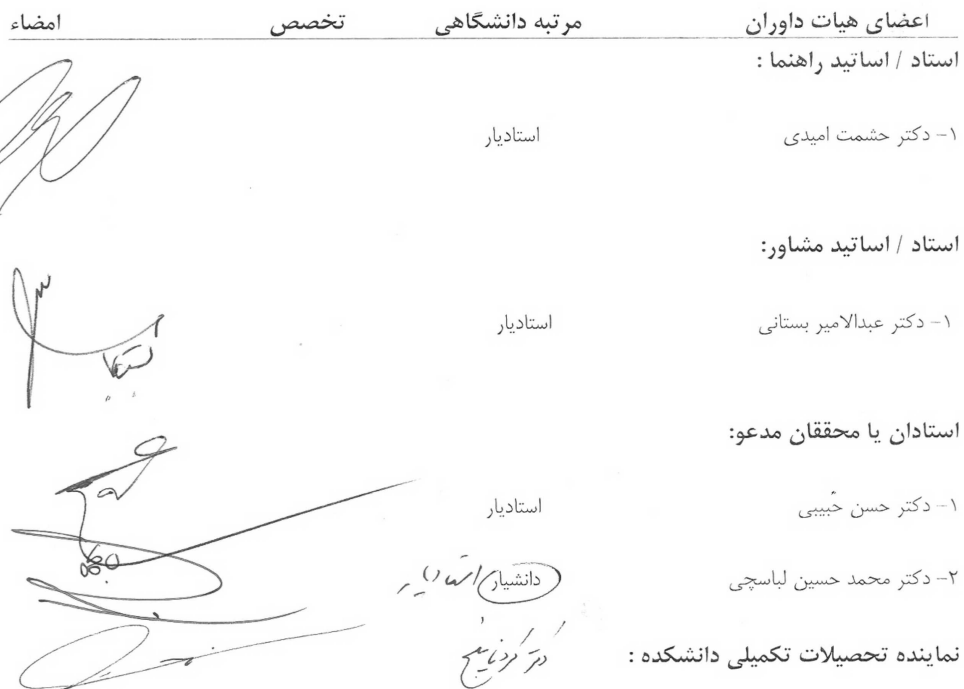 اعضای هیات داوران مرتبه دانشگاهی تخصص امضاء
استاد / اساتید راهنما :
۱- دکتر حشمت امیدی استادیار
استاد / اساتید مشاور:
۱- دکتر عبدالامیر بستانی استادیار
استادان یا محققان مدعو:
۱- دکتر حسن حبیبی استادیار
۲- دکتر محمد حسین لباسچی دانشیار استادیار
نماینده تحصیلات تکمیلی دانشکده : دکتر